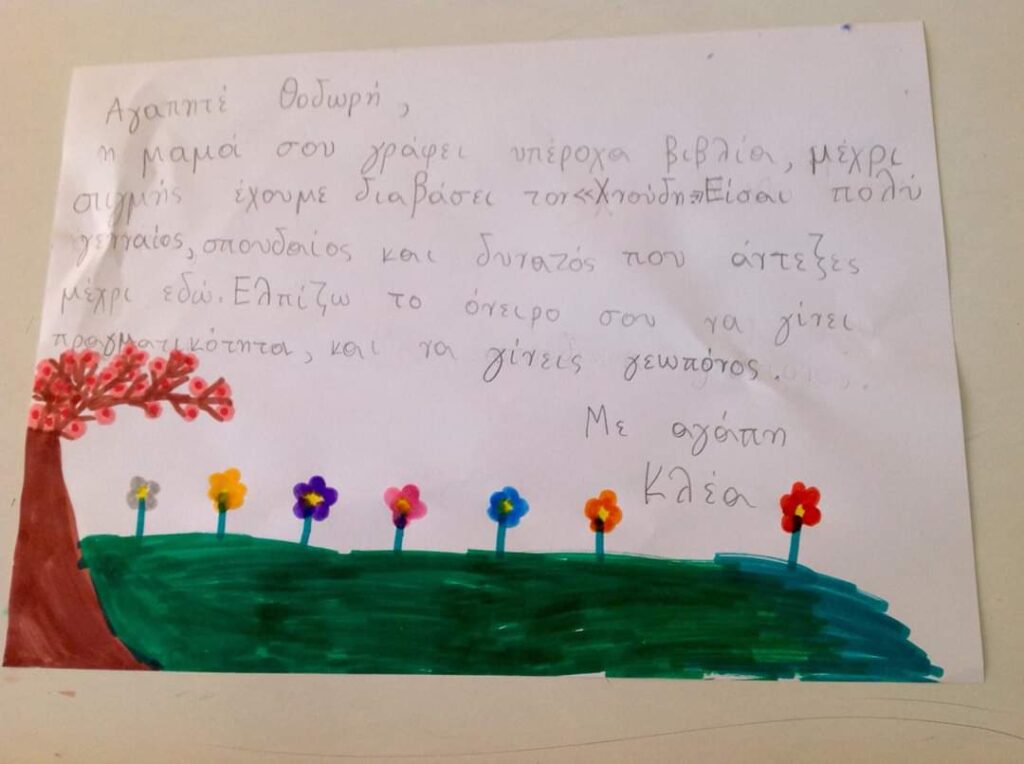 Αγαπητέ Θοδωρή,
η μαμά σου γράφει υπέροχα βιβλία, μέχρι
στιγμής έχουμε διαβάσει τον «Χνούδη» Είσαι πολύ
γενναίος, σπουδαίος και δυνατός που άντεξες
μέχρι εδώ. Ελπίζω το όνειρο σου να γίνει
πραγματικότητα, και να γίνεις γεωπόνος.
Με αγάπη
Κλέα